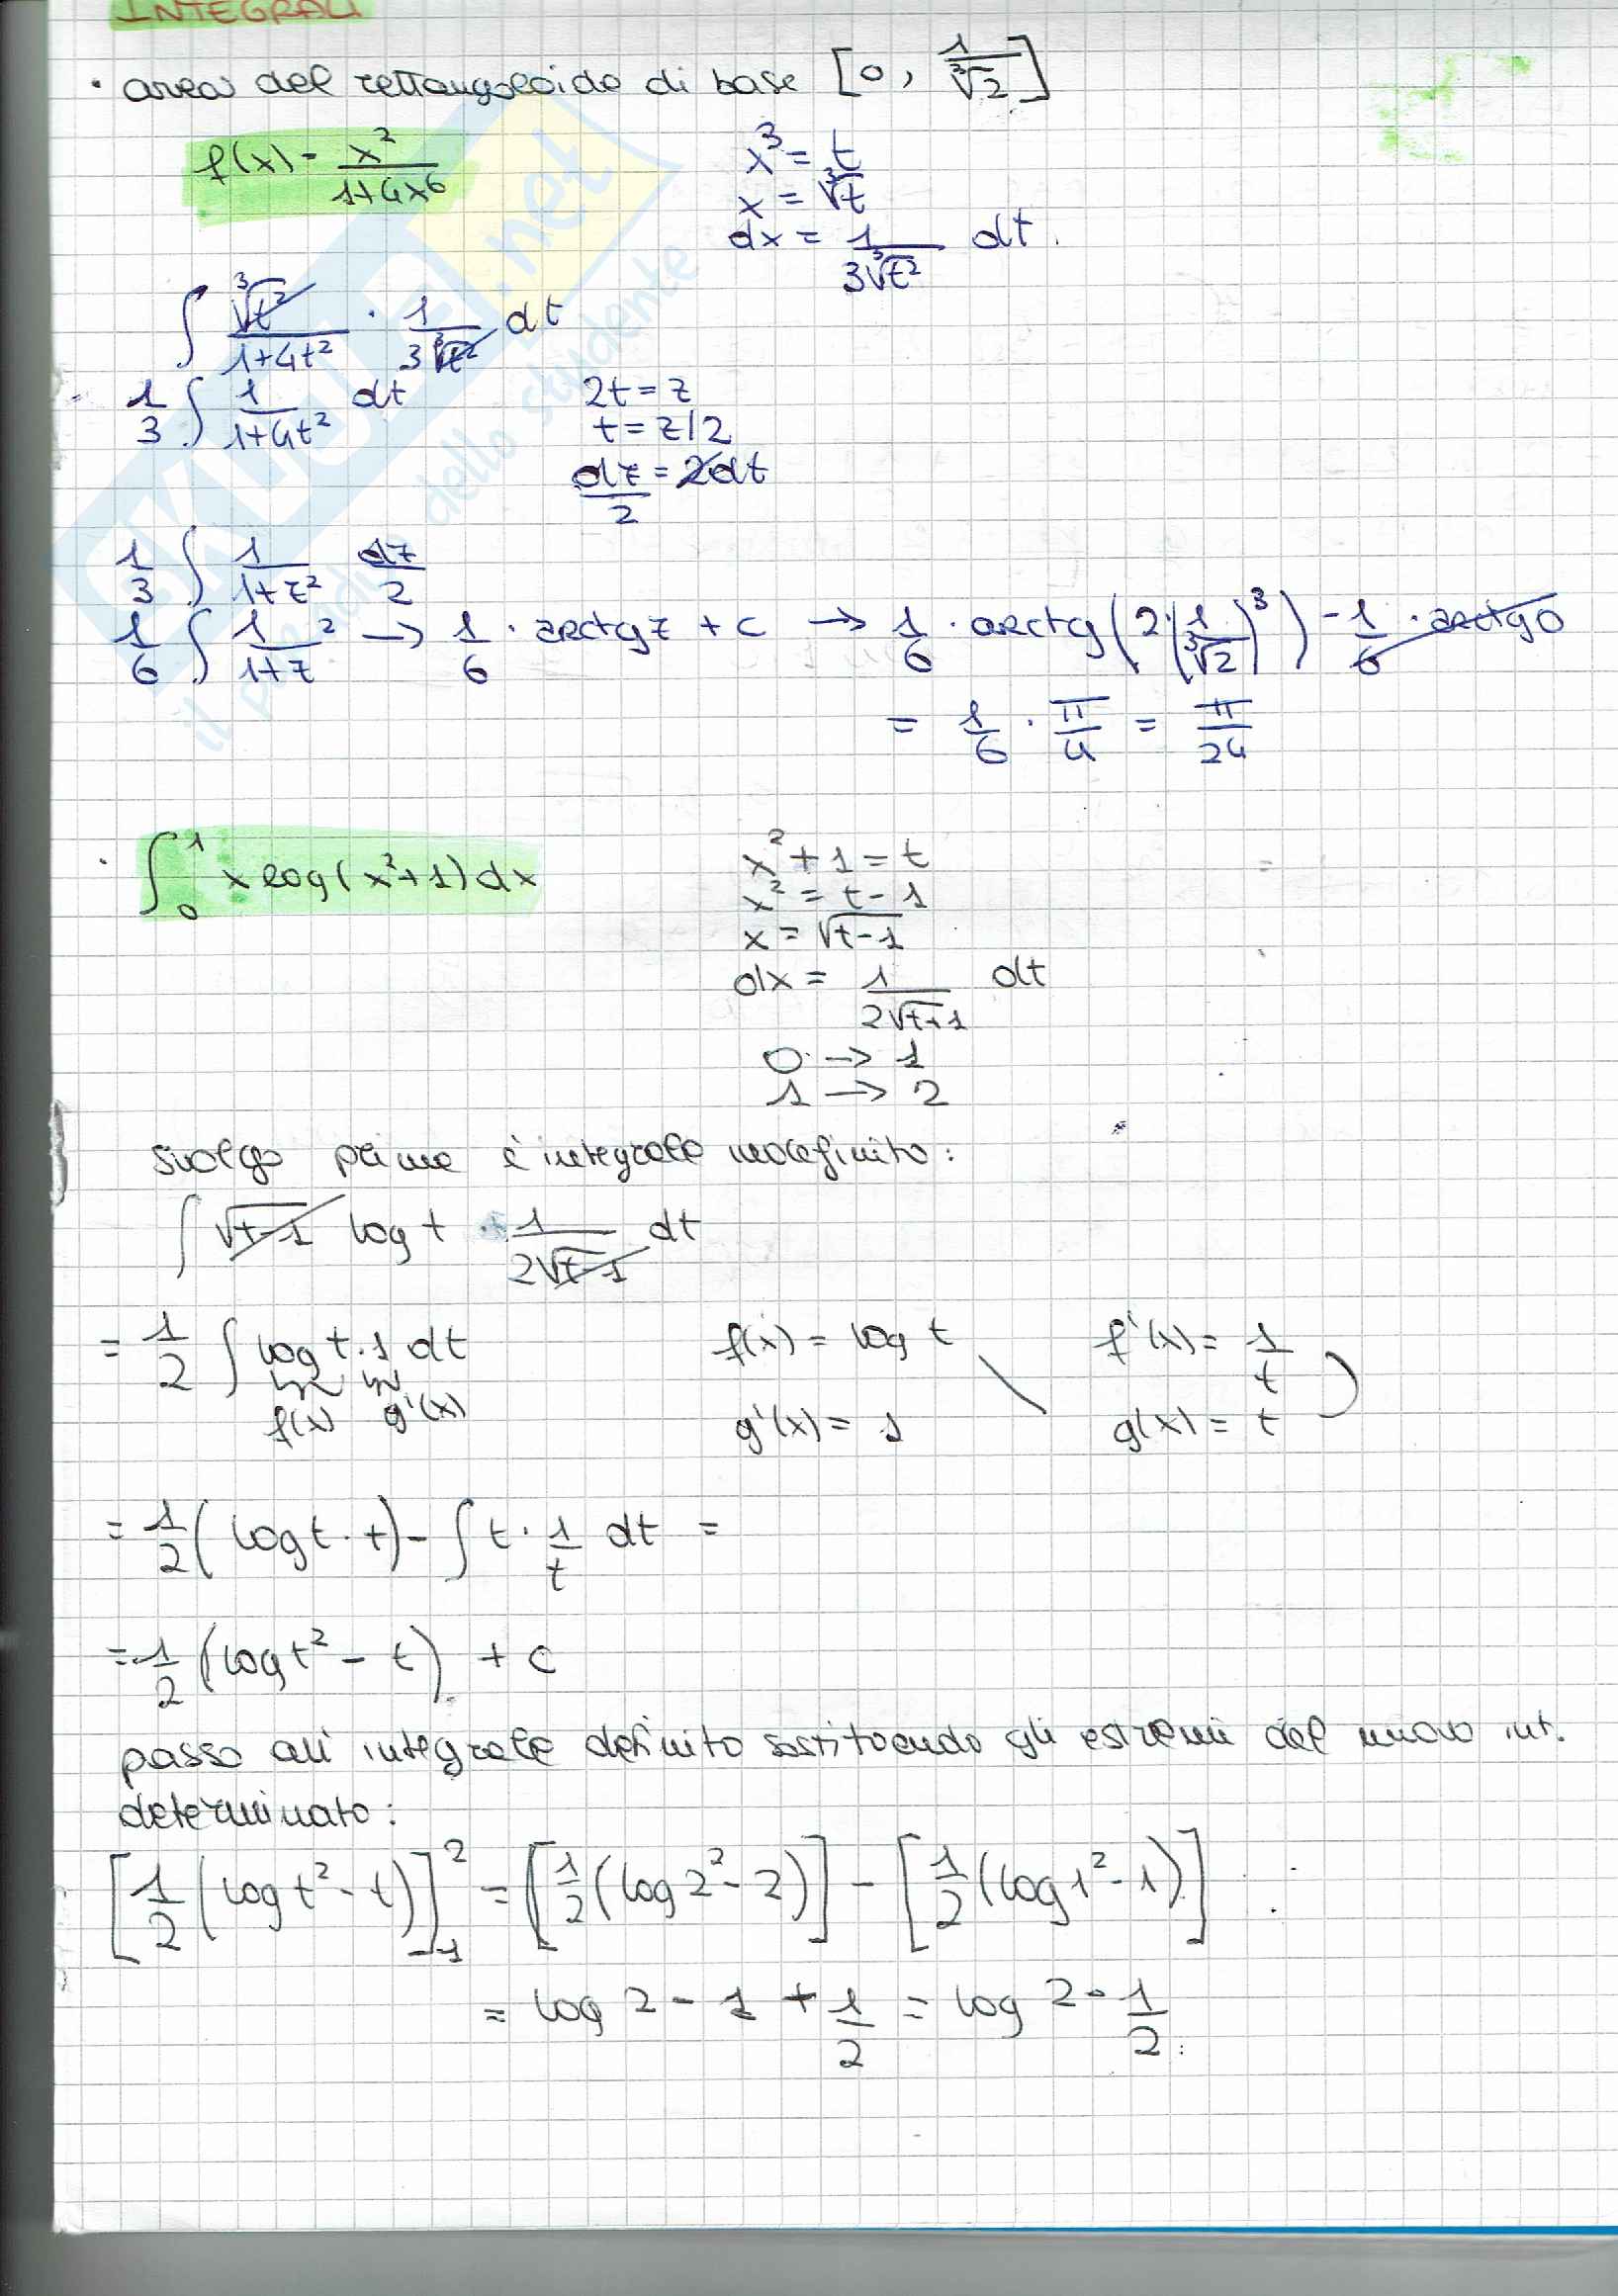 INTEGRALI
• area del rettangoloide di base [0, 1/∛2]
f(x) = x²/(1+4x⁶)
x³ = t
x = ∛t
dx = 1/(3∛t²) dt.
∫ ∛t²/(1+4t²) · 1/(3∛t²) dt
1/3 ∫ 1/(1+4t²) dt
2t = z
t = z/2
dz/2 = 2dt
1/3 ∫ 1/(1+z²) dz/2
1/6 ∫ 1/(1+z²) → 1/6 · arctg z + c → 1/6 · arctg(2·(1/∛2)³) - 1/6 · arctg 0
= 1/6 · π/4 = π/24
• ∫₀¹ x log(x²+1) dx
x² + 1 = t
x² = t - 1
x = √(t-1)
dx = 1/(2√(t+1)) dt
0 → 1
1 → 2
svolgo prima l'integrale indefinito:
∫ √(t-1) log t · 1/(2√(t-1)) dt
= 1/2 ∫ log t · 1 dt
f(x) g'(x)
f(x) = log t f'(x) = 1/t
g'(x) = 1 g(x) = t
= 1/2 (log t · t) - ∫ t · 1/t dt =
= 1/2 (log t² - t) + c
passo all'integrale definito sostituendo gli estremi del nuovo int.
determinato:
[1/2 (log t² - t)]₁² = [1/2 (log 2² - 2)] - [1/2 (log 1² - 1)]
= log 2 - 1 + 1/2 = log 2 - 1/2
SKUOLA.net
il paradiso dello studente